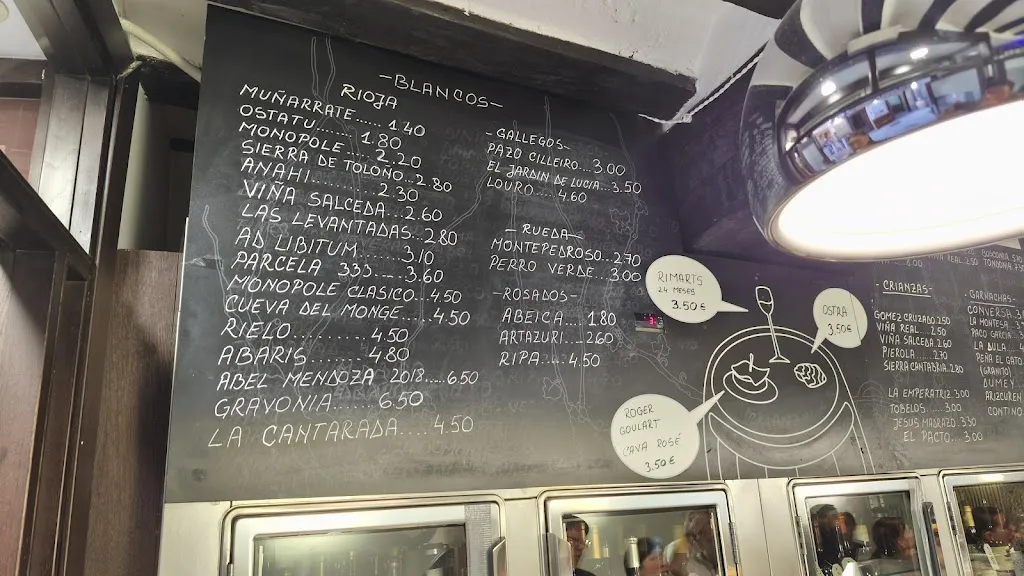 -BLANCOS-
RIOJA
MUÑARRATE..... 1.40
OSTATU..... 1.80
MONOPOLE.... 2.20
SIERRA DE TOLOÑO..2.80
ANAHI....... 2.30
VIÑA SALCEDA...2.60
LAS LEVANTADAS..2.80
AD LIBITUM.....3,10
PARCELA 333.....3.60
MONOPOLE CLASICO..4.50
CUEVA DEL MONGE....4.50
RIELO..........4.50
ABARIS........4.80
ABEL MENDOZA 2018....6.50
GRAVONIA......6.50
LA CANTARADA....4.50
-GALLEGOS-
PAZO CILLEIRO...3.00
EL JARDIN DE LUCIA...3.50
LOURO....4.60
-RUEDA-
MONTEPEDROSO..2.70
PERRO VERDE...3.00
-ROSADOS-
ABEICA...1.80
ARTAZURI...2.60
RIPA....4.50
RIMARTS
24 MESES
3.50€
OSTRA
3,50€
ROGER
GOULART
CAVA ROSÉ
3.50€
-CRIANZAS-
GOMEZ CRUZADO 2.50
VIÑA REAL...2.50
VIÑA SALCEDA 2.60
PIEROLA...2.70
SIERRA CANTABRIA 2.80
LA EMPERATRIZ 3.00
TOBELOS...3.00
JESUS MADRAZO 3.50
EL PACTO...3.00
-GARNACHAS-
CONVERSA
LA MONTESA
PACO GARCIA
PEÑA EL GATO
(GRANITO)
CONTINO